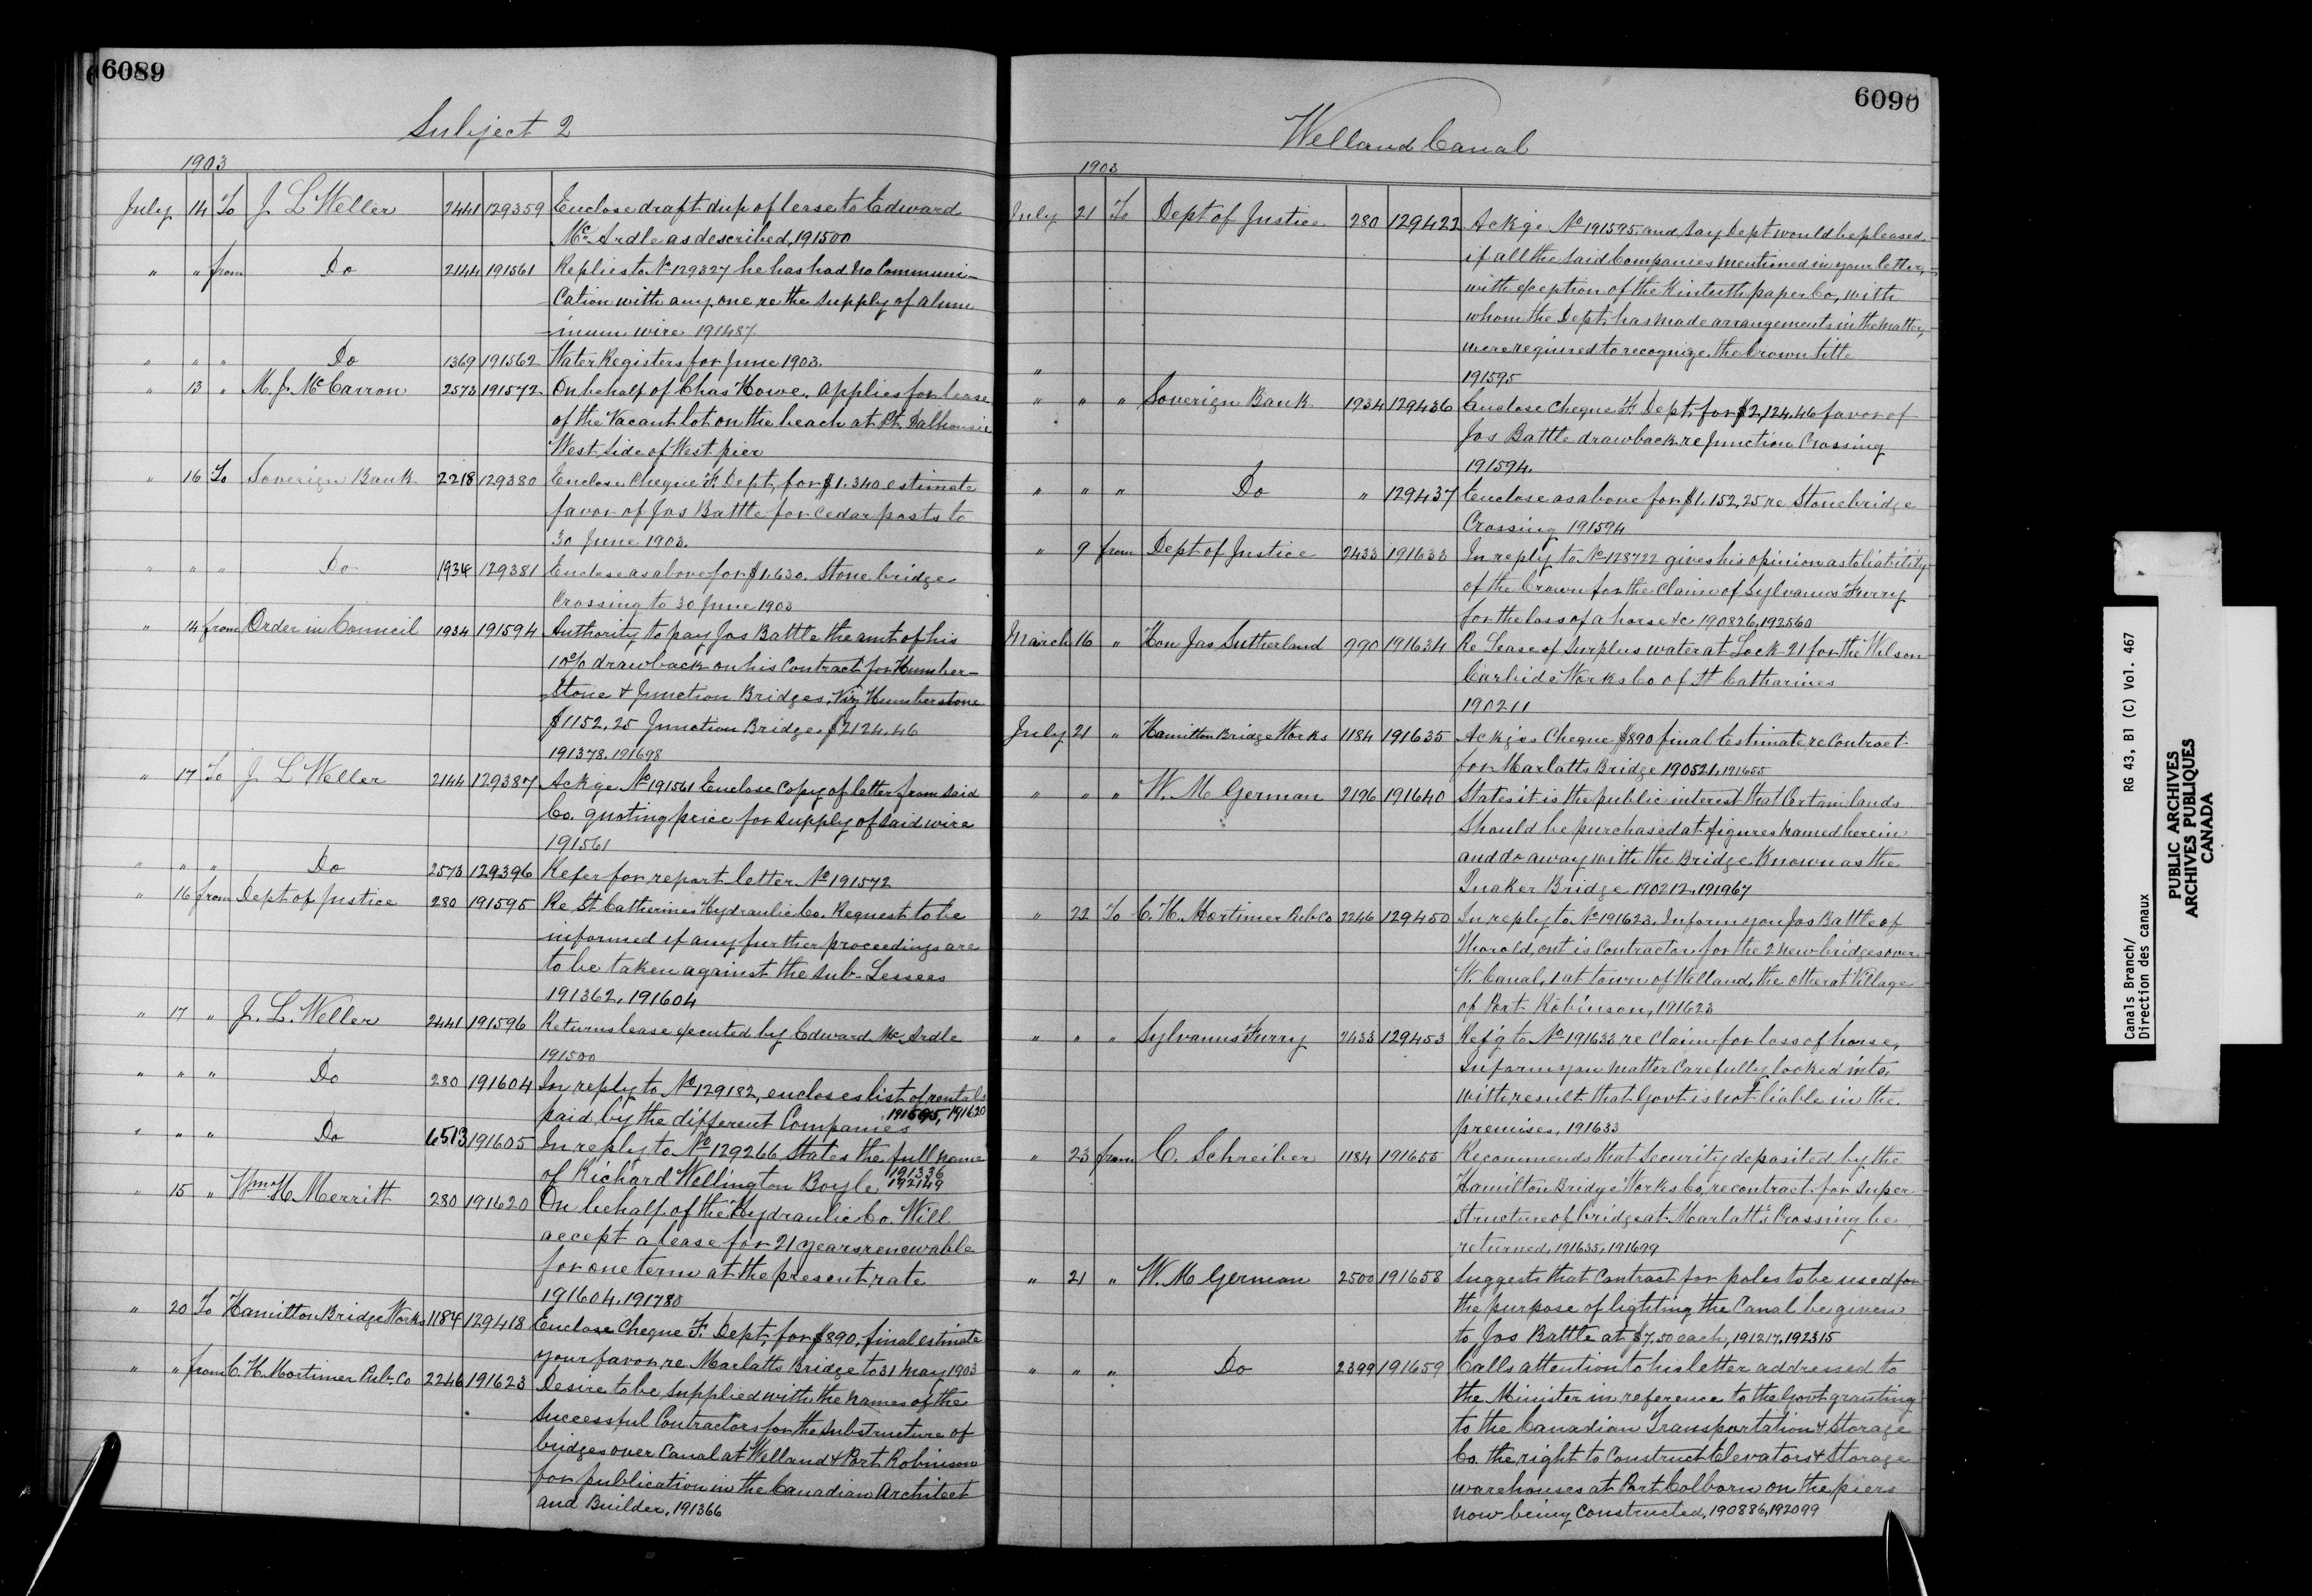 6089
Subject 2
1903
July 14 To J L Weller 2441 129359 Enclose draft dup of lease to Edward
Mc Ardle as described, 191500
" " from Do 2144 191561 Replies to No 129327 he has had no Communi-
cation with any one re the supply of alum
-inum wire 191487
" " " Do 1369 191562 Water Registers for June 1903.
" 13 " M. J. McCarron 2573 191572 On behalf of Chas Howe. applies for lease
of the Vacant lot on the beach at Pt. Dalhousie
West side of West pier
" 16 To Soverign Bank 2218 129380 Enclose Cheque F. Dept, for $1.340 estimate
favor of Jos Battle for cedar posts to
30 June 1903.
" " " Do 1934 129381 Enclose as above for $1.630. Stone bridge
Crossing to 30 June 1903
" 14 from Order in Council 1934 191594 Authority to pay Jos Battle the amt of his
10% drawback on his Contract for Humber-
stone & Junction Bridges, Viz Humberstone
$1152,25 Junction Bridge $2124.46
191378.191698
" 17 To J L Weller 2144 129387 Ackge No 191561 Enclose Copy of letter from said
Co. quoting price for supply of said wire
191561
" " " Do 2573 129396 Refer for report letter No 191572
" 16 from Dept of Justice 280 191595 Re St Catherines Hydraulic Co. Request to be
informed if any further proceedings are
to be taken against the sub-Lessees
191362, 191604
" 17 " J. L. Weller 2441 191596 Returns lease executed by Edward Mc Ardle
191500
" " " Do 280 191604 In reply to No 129182, encloses list of rentals
paid by the different Companies 191595, 191620
" " " Do 6513 191605 In reply to No 129266 States the full name
of Richard Wellington Boyle 191336 192149
" 15 " Wm H. Merritt 280 191620 On behalf of the Hydraulic Co. Will
accept a lease for 21 years renewable
for one term at the present rate
191604.191780
" 20 To Hamilton Bridge Works 1184 129418 Enclose Cheque F. Dept, for $890, final estimate
your favor re Marlatts Bridge to 31 May 1903
" " from C. H. Mortimer Pub. Co 2246 191623 Desire to be supplied with the names of the
successful Contractors for the substructure of
bridges over Canal at Welland & Port Robinson
for publication in the Canadian Architect
and Builder, 191366
6090
Welland Canal
1903
July 21 To Dept of Justice 280 129422 Ackge No 191595, and say Dept would be pleased
if all the said Companies mentioned in your letter,
with exception of the Kinleith paper Co, with
whom the Dept, has made arrangements in the matter,
were required to recognize the Crown title
" 191595
" " " Soverign Bank 1934 129436 Enclose cheque F. Dept, for $2,124.46 favor of
Jos Battle drawback re Junction Crossing
191594.
" " " Do " 129437 Enclose as above for $1.152,25 re Stonebridge
Crossing 191594
" 9 from Dept of Justice 2433 191633 In reply to No 128722 gives his opinion as to liability
of the Crown for the claim of Sylvanus Furry
for the loss of a horse &c 190826,192560
March 16 " Hon Jas Sutherland 990 191634 Re Lease of Surplus water at Lock 21 for the Wilson
Carbide Works Co of St Catharines
190211
July 21 " Hamilton Bridge Works 1184 191635 Ackges Cheque $890 final Estimate re Contract
for Marlatts Bridge 190521,191655
" " " W. M German 2196 191640 States it is the public interest that Certain lands
should be purchased at figures named herein
and do away with the Bridge Known as the
Quaker Bridge 190212,191967
" 22 To C. H. Mortimer Pub Co 2246 129450 In reply to No 191623, Inform you Jos Battle of
Thorold, ont is Contractor for the 2 new bridges over
W. Canal, 1 at town of Welland, the other at Village
of Port Robinson, 191623
" " " Sylvanus Furry 2433 129453 Ref'g to No 191633 re claim for loss of horse,
Inform you matter Carefully looked into,
with result that Govt is not liable in the
premises, 191633
" 23 from C. Schreiber 1184 191655 Recommends that Security deposited by the
Hamilton Bridge Works Co, re contract for super
structure of bridge at Marlatt's Crossing be
returned, 191635,191699
" 21 " W. M German 2500 191658 Suggests that Contract for poles to be used for
the purpose of lighting the Canal be given
to Jos Battle at $7.50 each, 191217,192315
" " " Do 2399 191659 Calls attention to his letter addressed to
the Minister in reference to the Govt granting
to the Canadian Transportation & Storage
Co. the right to Construct Elevators & Storage
warehouses at Port Colborn on the piers
now being Constructed, 190886,192099
Canals Branch/ RG 43, B1 (C) Vol. 467
Direction des canaux
PUBLIC ARCHIVES
ARCHIVES PUBLIQUES
CANADA